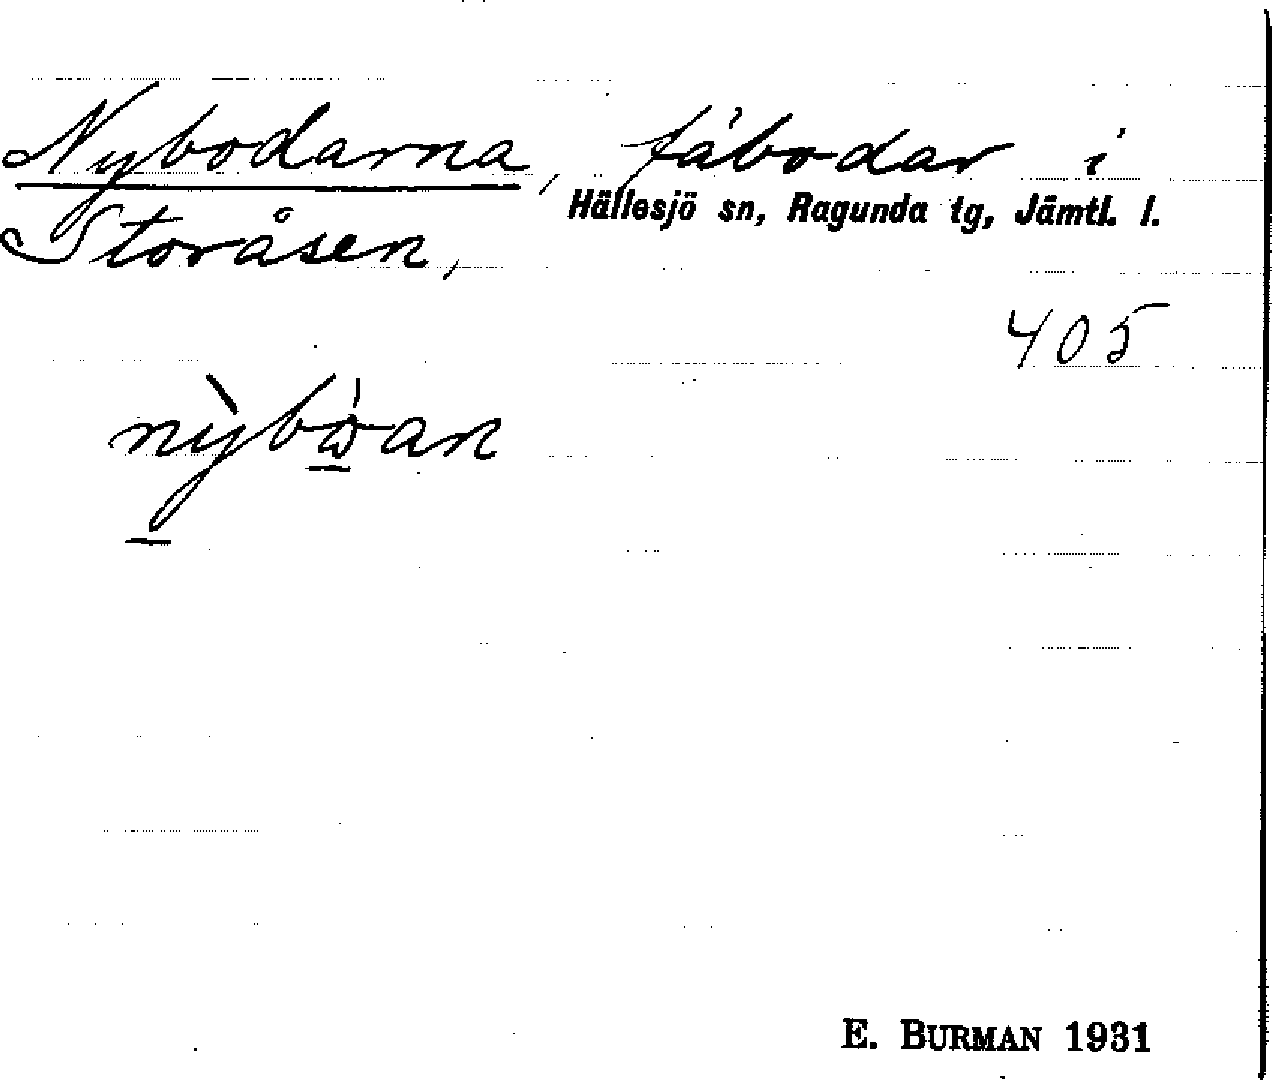 Nybodarna, fäbodar i
Hällesjö sn, Ragunda tg, Jämtl. l.
Storåsen,
405
E. BURMAN 1931